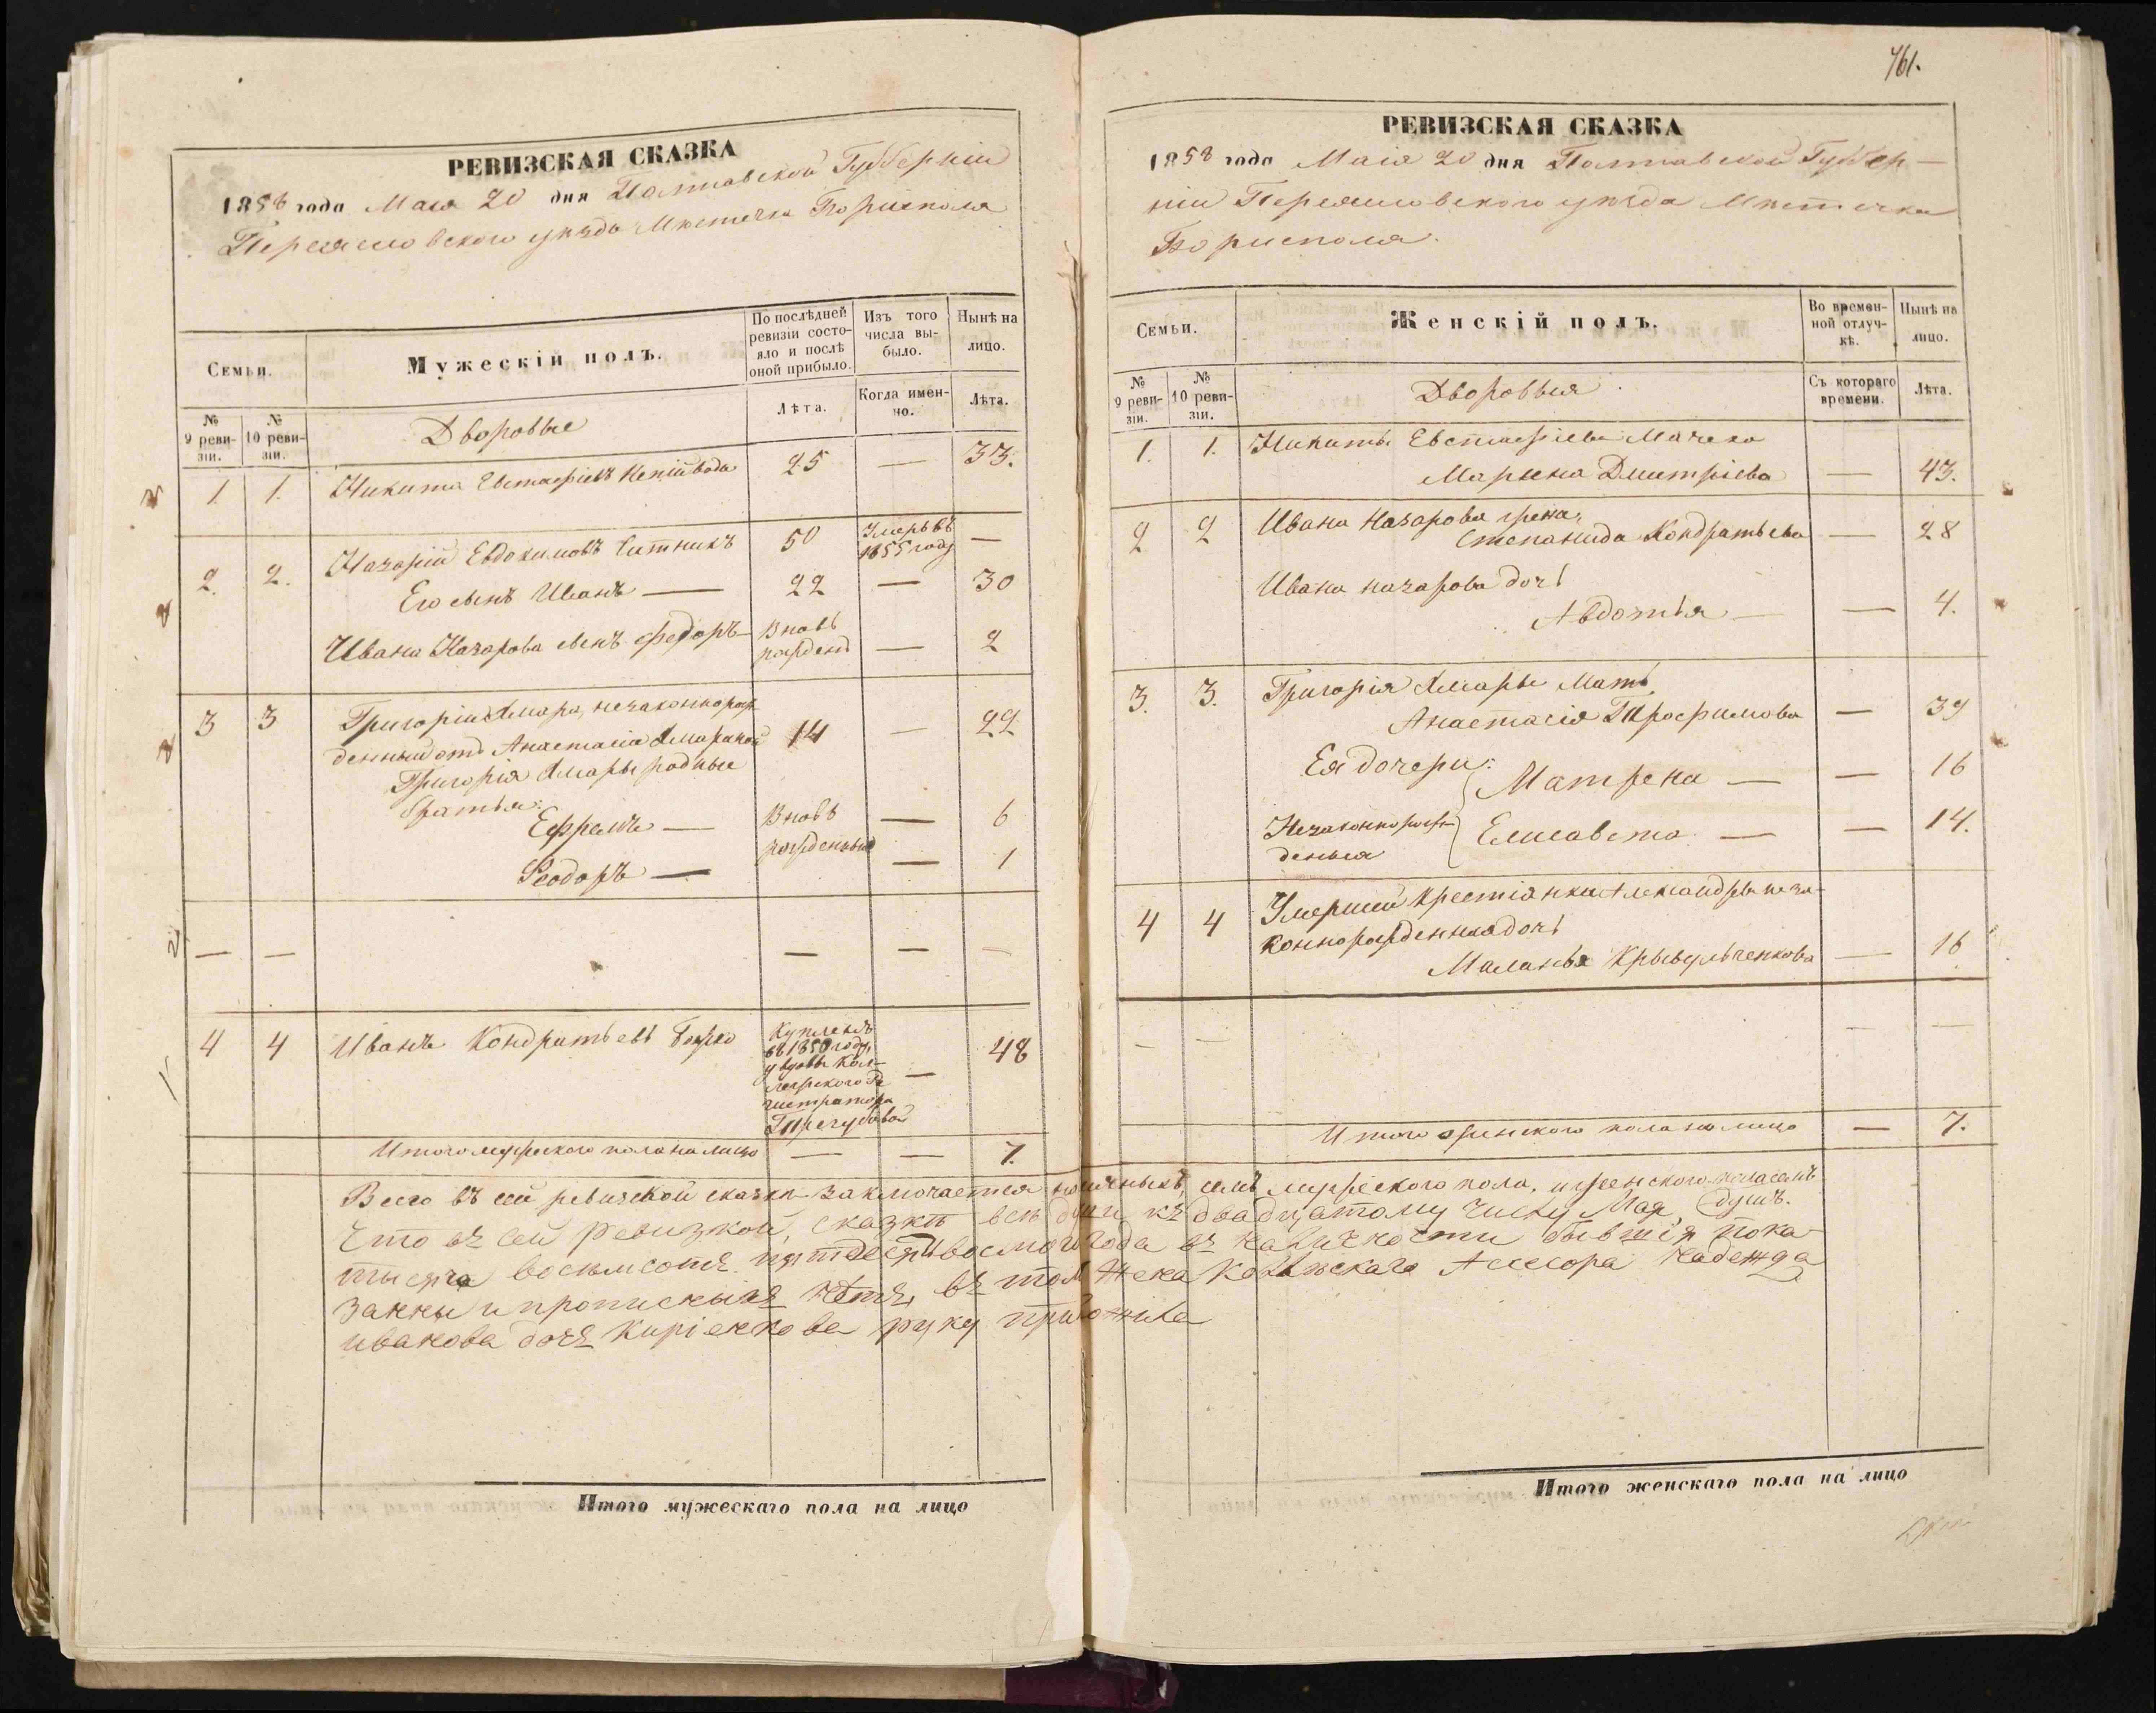 РЕВИЗСКАЯ СКАЗКА
1858 года Мая 20 дня Полтавской Губерніи
Переяславского уѣзда Мѣстечка Борисполя
Семьи.
Мужескій полъ.
По послѣдней ревизіи состояло и послѣ оной прибыло.
Изъ того числа выбыло.
Нынѣ на лицо.
№ 9 ревизіи.
№ 10 ревизіи.
Дворовые
Лѣта.
Когда именно.
Лѣта.
1 1. Никита Евстафіевъ Непійвода 25 — 33.
2. 2. Назарій Евдокимовъ Ситникъ 50 Умеръ въ 1855 году —
Его сынъ Иванъ — 22 — 30
Ивана Назарова сынъ Федоръ — Вновь рожденъ — 2
3 3 Григорій Хмара, незаконнорож-
денный отъ Анастасіи Хмариной 14 — 22
Григорія Хмары родные
братья:
Ефремъ — Вновь — 6
Феодоръ — рожденные — 1
— — — — —
4 4 Иванъ Кондратьевъ Купленъ въ 1850 году у вдовы Коллежского Регистратора — 48
Итого мужеского пола на лицо — — 7.
Всего въ сей ревизской сказкѣ заключается наличныхъ, семъ мужеского пола, и женского пола семъ душъ.
Что въ сей ревизкой, сказкѣ всѣ души къ двадцатому числу Мая
тысяча восемсотъ пятдесятвосмого года въ наличности бывшія пока-
занны и прописныхъ нѣтъ, въ том Жена Колѣжскаго Ассесора Надежда
иванова дочъ Киріенкова руку приложила
Итого мужескаго пола на лицо
761.
РЕВИЗСКАЯ СКАЗКА
1858 года Маія 20 дня Полтавской Губер-
ніи Переяславского уѣзда Мѣстечка
Борисполя.
Семьи.
Женскій полъ.
Во временной отлучкѣ.
Нынѣ на лицо.
№ 9 ревизіи.
№ 10 ревизіи.
Дворовыя
Съ котораго времени.
Лѣта.
1. 1. Никиты Евстафіева Мачеха
Марьена Дмитріева — 43.
2 2 Ивана Назарова жена,
Степанида Кондратьева — 28
Ивана назарова дочь
Авдотья — — 4.
3. 3. Григорія Хмары Мать,
Анастасія Трофимова — 39
Ея дочери: Матрена — — 16
Незаконнорож-
денныя Елисавета — — 14.
4 4 Умершей крестіянки Александры неза-
коннорожденная дочь
Маланья Крывульченкова — 16
— — — —
Итого женского пола на лицо — 7.
Итого женскаго пола на лицо